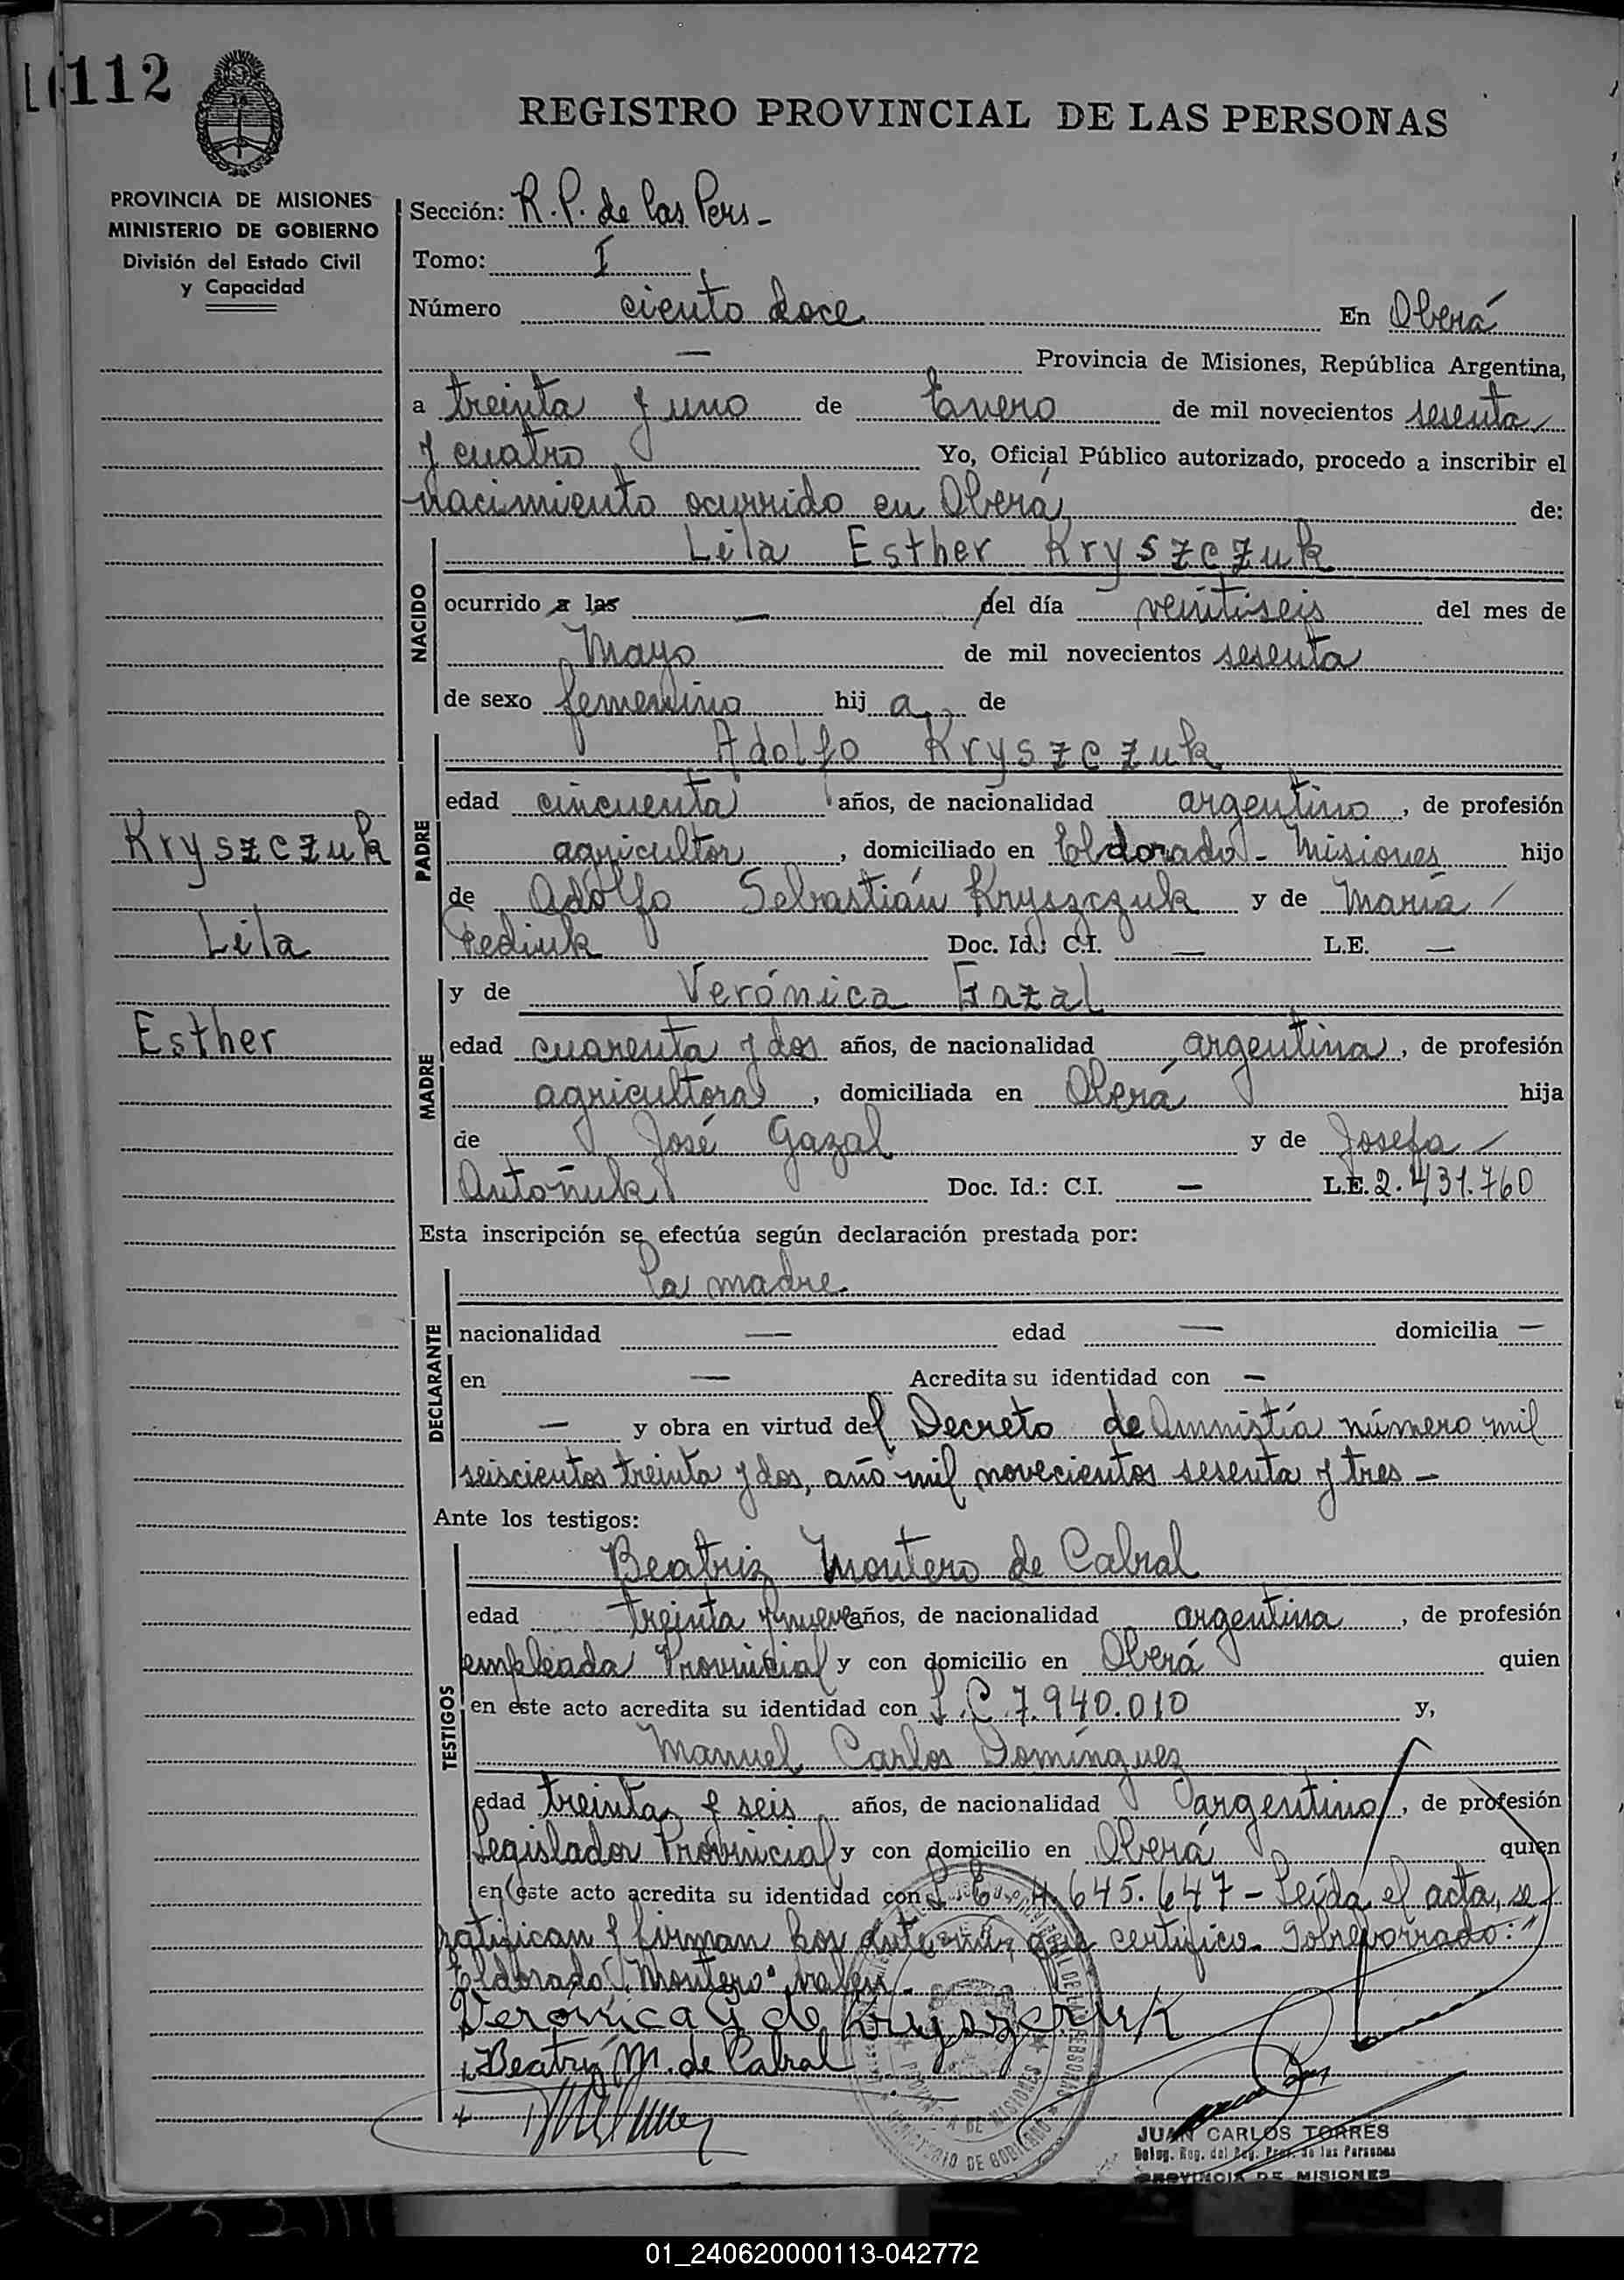 112
REGISTRO PROVINCIAL DE LAS PERSONAS
PROVINCIA DE MISIONES
MINISTERIO DE GOBIERNO
División del Estado Civil
y Capacidad
Sección: R. P. de las Pers -
Tomo: I
Número ciento doce En Oberá
— Provincia de Misiones, República Argentina,
a treinta y uno de Enero de mil novecientos sesenta
y cuatro Yo, Oficial Público autorizado, procedo a inscribir el
nacimiento ocurrido en Oberá de:
NACIDO
Lila Esther Kryszczuk
ocurrido a las — del día veintiseis del mes de
Mayo de mil novecientos sesenta
de sexo femenino hij a de
PADRE
Adolfo Kryszczuk
edad cincuenta años, de nacionalidad argentino, de profesión
Kryszczuk
agricultor, domiciliado en Eldorado - Misiones hijo
de Adolfo Sebastián Kryszczuk y de María
Lila
Fediuk Doc. Id.: C.I. — L.E. —
MADRE
y de Verónica Gazal
Esther
edad cuarenta y dos años, de nacionalidad argentina, de profesión
agricultora, domiciliada en Oberá hija
de José Gazal y de Josefa
Antoñuk Doc. Id.: C.I. — L.E. 2.431.760
Esta inscripción se efectúa según declaración prestada por:
DECLARANTE
la madre
nacionalidad — edad — domicilia —
en — Acredita su identidad con —
— y obra en virtud del Decreto de Amnistía número mil
seiscientos treinta y dos, año mil novecientos sesenta y tres -
Ante los testigos:
TESTIGOS
Beatriz Montero de Cabral
edad treinta y nueve años, de nacionalidad argentina, de profesión
empleada Provincial y con domicilio en Oberá quien
en este acto acredita su identidad con L.C. 7.940.010 y,
Manuel Carlos Domínguez
edad treinta y seis años, de nacionalidad argentino, de profesión
Legislador Provincial y con domicilio en Oberá quien
en este acto acredita su identidad con L.E. 4.645.647 - Leída el acta, se
ratifican y firman por ante mí, que certifico. Sobreborrado: "
Eldorado", "Montero" valen.
Verónica G de Kryszczuk
Beatriz M. de Cabral
JUAN CARLOS TORRES
Deleg. Reg. del Reg. Prov. de las Personas
PROVINCIA DE MISIONES
01_240620000113-042772